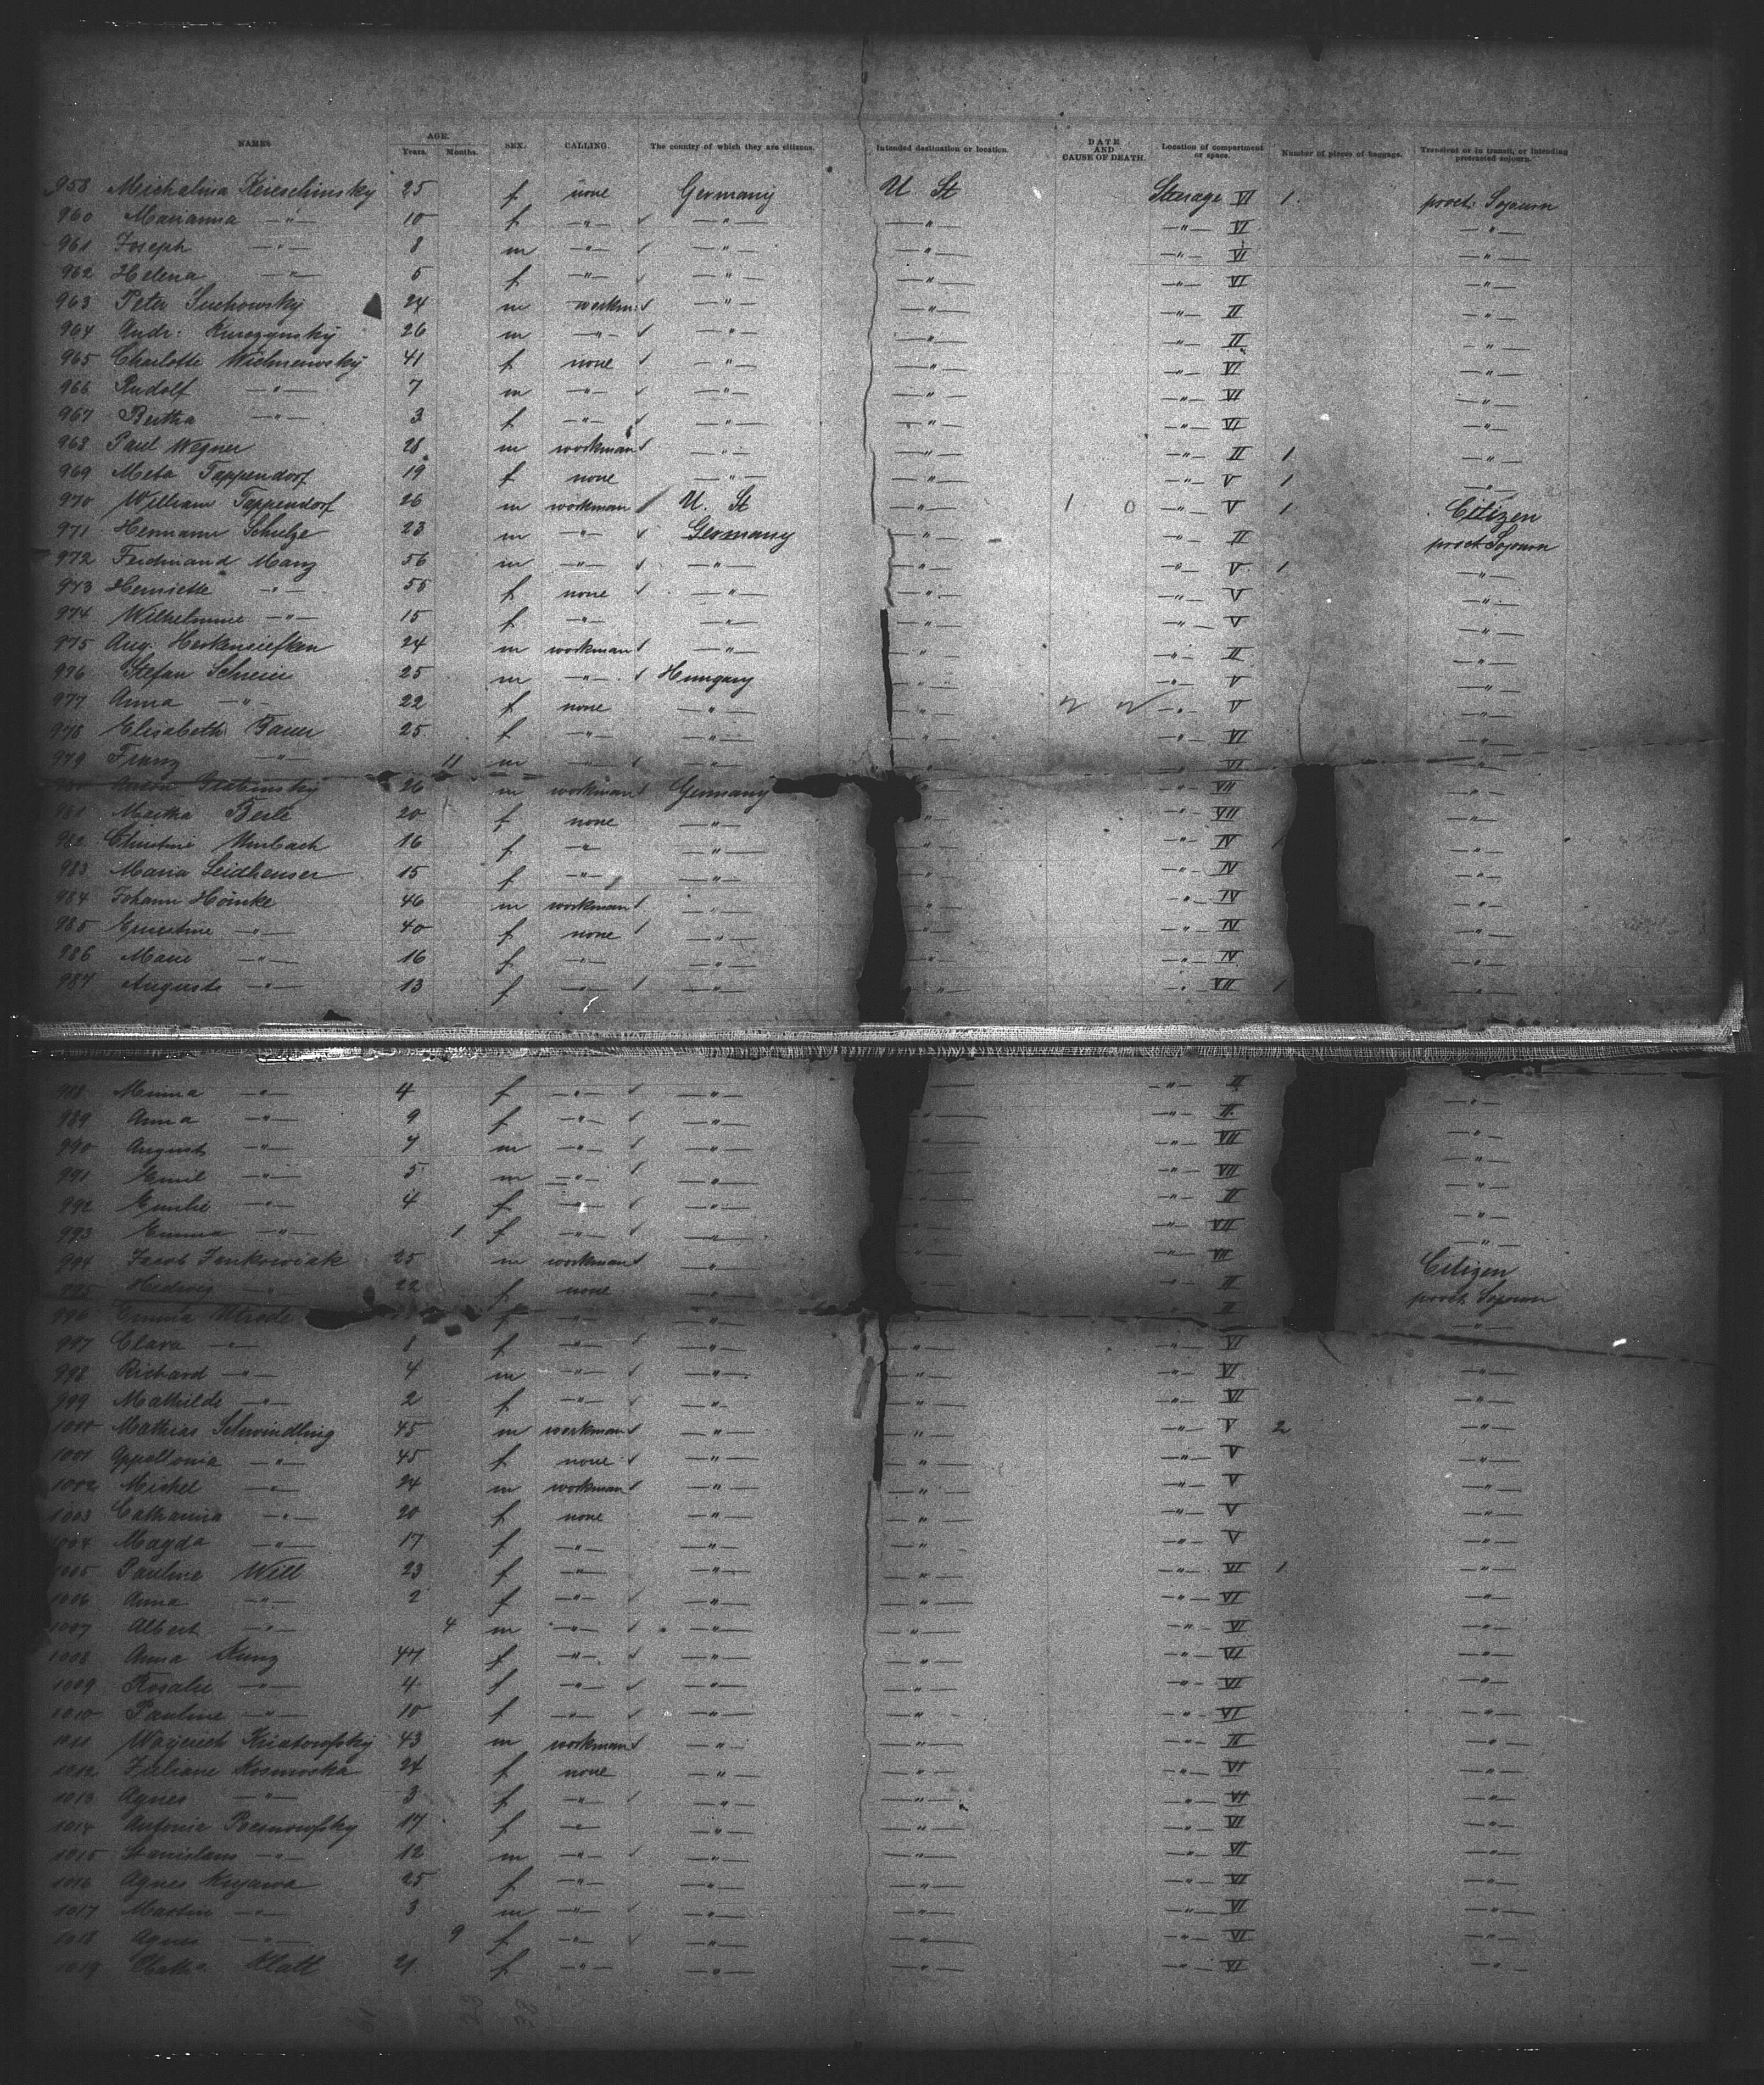 NAMES AGE. Years. Months. SEX. CALLING. The country of which they are citizens. Intended destination or location. DATE AND CAUSE OF DEATH. Location of compartment or space. Number of pieces of baggage. Transient or in transit, or intending protracted sojourn.
958 Michalina 25 f none Germany U St Steerage VI 1. proct. Sojourn
960 Marianna —"— 10 f —"— —"— —"— —"— VI —"—
961 Joseph —"— 8 m —"— —"— —"— —"— VI —"—
962 Helena —"— 5 f —"— —"— —"— —"— VI —"—
963 Peter Suchowsky 24 m workm. —"— —"— —"— II —"—
964 Andr. 26 m —"— —"— —"— —"— II —"—
965 Charlotte 41 f none —"— —"— —"— VI —"—
966 Rudolf —"— 7 m —"— —"— —"— —"— VI —"—
967 Bertha —"— 3 f —"— —"— —"— —"— VI —"—
968 Paul Wegner 28 m workman —"— —"— —"— II 1 —"—
969 Meta Tappendorf 19 f none —"— —"— —"— V 1 —"—
970 William Tappendorf 26 m workman U. St —"— 1 0 —"— V 1 Citizen
971 Hermann Schulze 23 m —"— Germany —"— —"— II proct Sojourn
972 Ferdinand Manz 56 m —"— —"— —"— —"— V 1 —"—
973 Henriette —"— 55 f none —"— —"— —"— V —"—
974 Wilhelmine —"— 15 f —"— —"— —"— —"— V —"—
975 Aug. 24 m workman —"— —"— —"— II —"—
976 Stefan Schreier 25 m —"— Hungary —"— —"— V —"—
977 Anna —"— 22 f none —"— —"— —"— V —"—
978 Elisabeth Bauer 25 f —"— —"— —"— —"— VI —"—
979 Franz —"— 11 m —"— —"— —"— —"— VI —"—
Grabinsky 26 m workman Germany —"— —"— VII —"—
981 Martha 20 f none —"— —"— —"— VII —"—
982 Christine 16 f —"— —"— —"— IV 1 —"—
983 Maria Leidheuser 15 f —"— —"— —"— —"— IV —"—
984 Johann Hoinke 46 m workman —"— —"— —"— IV —"—
985 Ernestine —"— 40 f none —"— —"— —"— IV —"—
986 Marie —"— 16 f —"— —"— —"— —"— IV —"—
987 Auguste —"— 13 f —"— —"— —"— —"— VII 1 —"—
988 Minna —"— 4 f —"— —"— —"— II —"—
989 Anna —"— 9 f —"— —"— —"— —"— II —"—
990 August —"— 7 m —"— —"— —"— —"— VII —"—
991 Emil —"— 5 m —"— —"— —"— —"— VII —"—
992 Emilie —"— 4 f —"— —"— —"— —"— II —"—
993 Emma —"— 1 f —"— —"— —"— —"— VII —"—
994 Jacob Jankowiak 25 m workman —"— —"— —"— VII Citizen
995 Hedwig —"— 22 f none —"— —"— —"— II proct. Sojourn
996 Emma f —"— —"— —"— II —"—
997 Clara —"— 8 f —"— —"— —"— —"— VI —"—
998 Richard —"— 4 m —"— —"— —"— —"— VI —"—
999 Mathilde —"— 2 f —"— —"— —"— —"— VI —"—
1000 Mathias Schwindling 45 m workman —"— —"— —"— V 2 —"—
1001 Appollonia —"— 45 f none —"— —"— —"— V —"—
1002 Michel —"— 24 m workman —"— —"— —"— V —"—
1003 Catharina —"— 20 f none —"— —"— —"— V —"—
1004 Magda —"— 17 f —"— —"— —"— —"— V —"—
1005 Pauline Will 23 f —"— —"— —"— —"— VI 1 —"—
1006 Anna —"— 2 f —"— —"— —"— —"— VI —"—
1007 Albert —"— 4 m —"— —"— —"— —"— VI —"—
1008 Anna Kunz 47 f —"— —"— —"— —"— VI —"—
1009 Rosalie —"— 4 f —"— —"— —"— —"— VI —"—
1010 Pauline —"— 10 f —"— —"— —"— —"— VI —"—
1011 43 m workman —"— —"— —"— II —"—
1012 Juliane 24 f none —"— —"— —"— VI —"—
1013 Agnes —"— 3 f —"— —"— —"— —"— VI —"—
1014 Antonie 17 f —"— —"— —"— —"— VI —"—
1015 Stanislaus —"— 12 m —"— —"— —"— —"— VI —"—
1016 Agnes Kujawa 25 f —"— —"— —"— —"— VI —"—
1017 Martin —"— 3 m —"— —"— —"— —"— VI —"—
1018 Agnes —"— 9 f —"— —"— —"— —"— VI —"—
1019 Klatt 21 f —"— —"— —"— —"— VI —"—